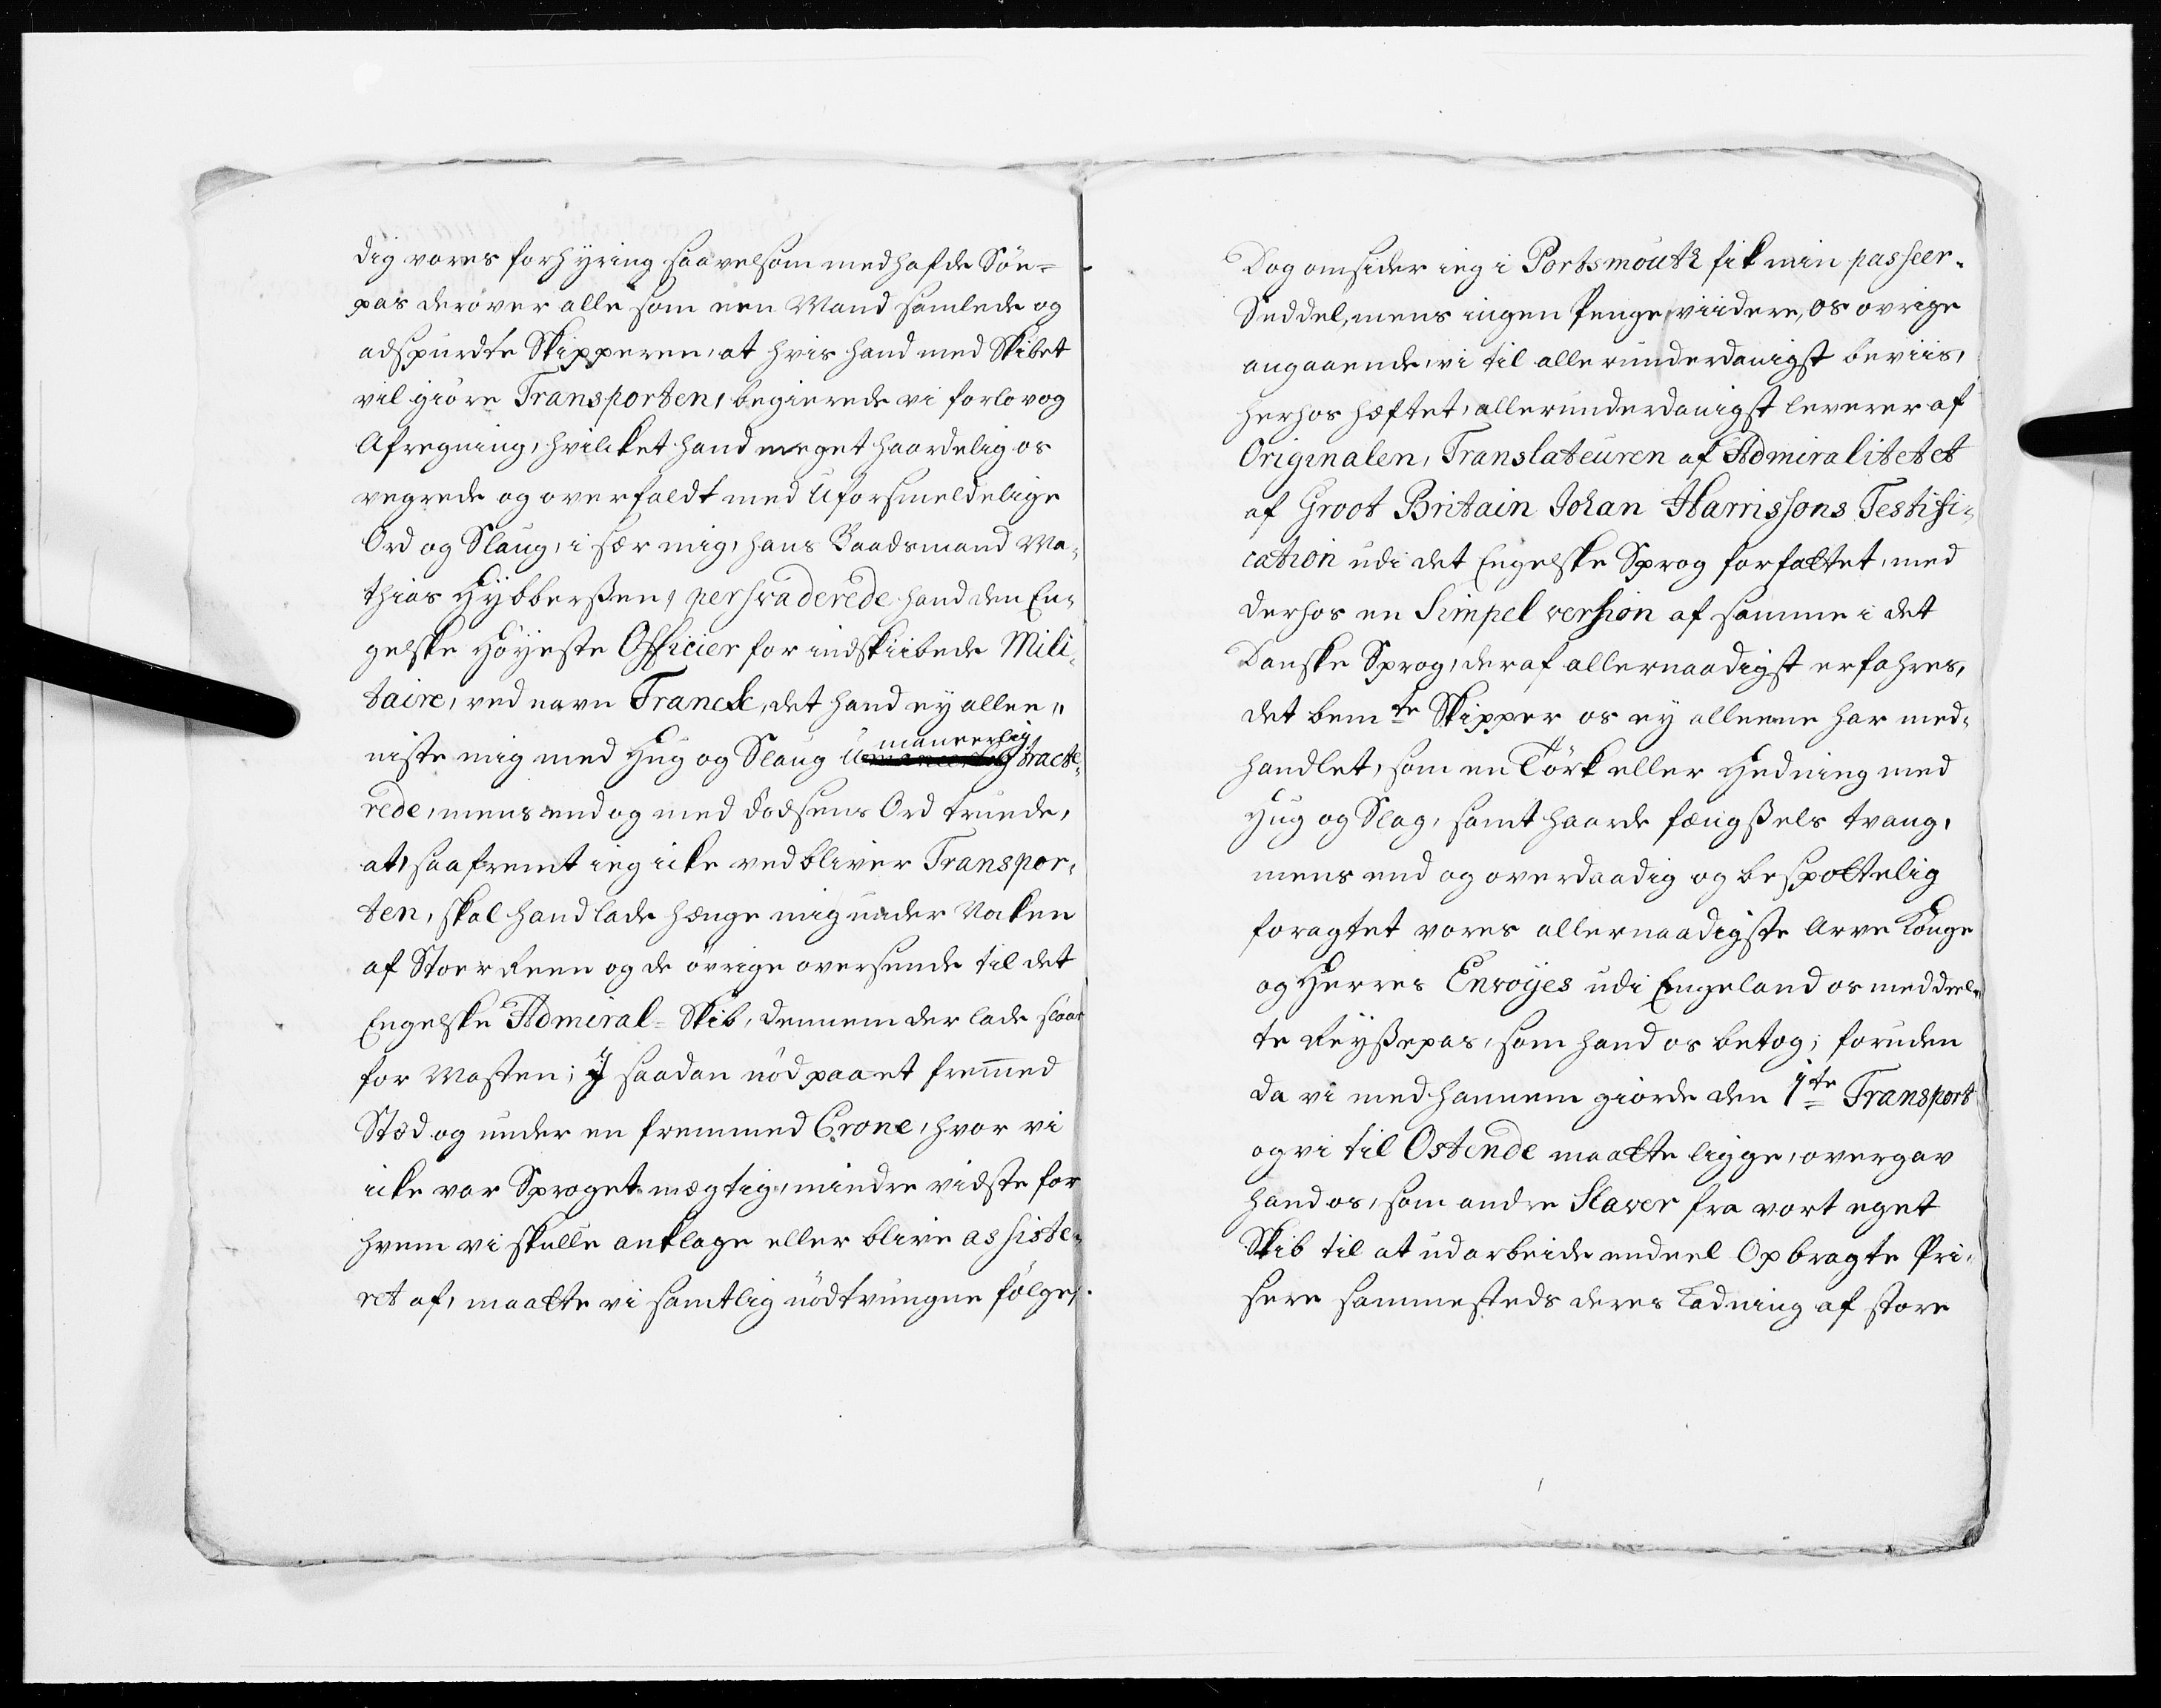 dig vores forhyring saavelsom medhafde Söe-
pas derover alle som een Mand samlede og
adspurdte Skipperen, at hvis hand med Skibet
vil giöre Transporten, begierede vi forlov og
Afregning, hvilcket hand meget haardelig os
vegrede og overfaldt med Uforsmeldelige
Ord og Slaug, i sær mig, hans Baadsmand Ma-
thias Hÿbberßen, persvaderede hand den En-
gelske Höÿeste Officier for indskibede Mili-
taire, ved navn Franck, det hand ey allee-
niste mig med Hug og Slaug U maneerlig tracte-
rede, mens endog med dödsens Ord truede,
at, saafremt ieg icke vedbliver Transpor-
ten, skal hand lade hænge mig under Nocken
af Stoer Reen og de övrige oversende til det
Engelske Admiral-Skib, dennem der lade slaae
for Masten; I saadan nöd paa et fremmed
Stæd og under en fremmed Crone, hvor vi
icke var Sproget mægtig, mindre vidste for
hvem vi skulle anklage eller blive assiste-
ret af, maatte vi samtlig nödtvungne fölge,
Dog omsider ieg i Portsmouth fik min passeer-
Seddel, mens ingen Penge, viidere, os ovrige
angaaende, vi til allerunderdanigst beviis,
herhos hæftet, allerunderdanigst leverer af
Originalen, Translateuren af Admiralitetet
af Groot Britain Johan Harrissons Testifi-
cation udi det Engelske Sprog forfattet, med
derhos en Simpel version af samme i det
Danske Sprog, deraf allernaadigst erfahres,
det bemte Skipper os ey alleene har med-
handlet, som en Törk eller Hedning med
Hug og Slag, samt haarde fængßels tvang,
mens end og overdaadig og bespottelig
foragtet vores allernaadigste Arve Konge
og Herres Envoÿes udi Engeland os meddeel-
te Reÿßepas, som hand os betog; foruden
da vi med hannem giorde den 1te Transport
og vi til Ostende maatte ligge, overgav
hand os, som andre Slaver fra vort eget
Skib til at udarbeide endeel Opbragte Pri-
sere sammesteds deres Ladning af store